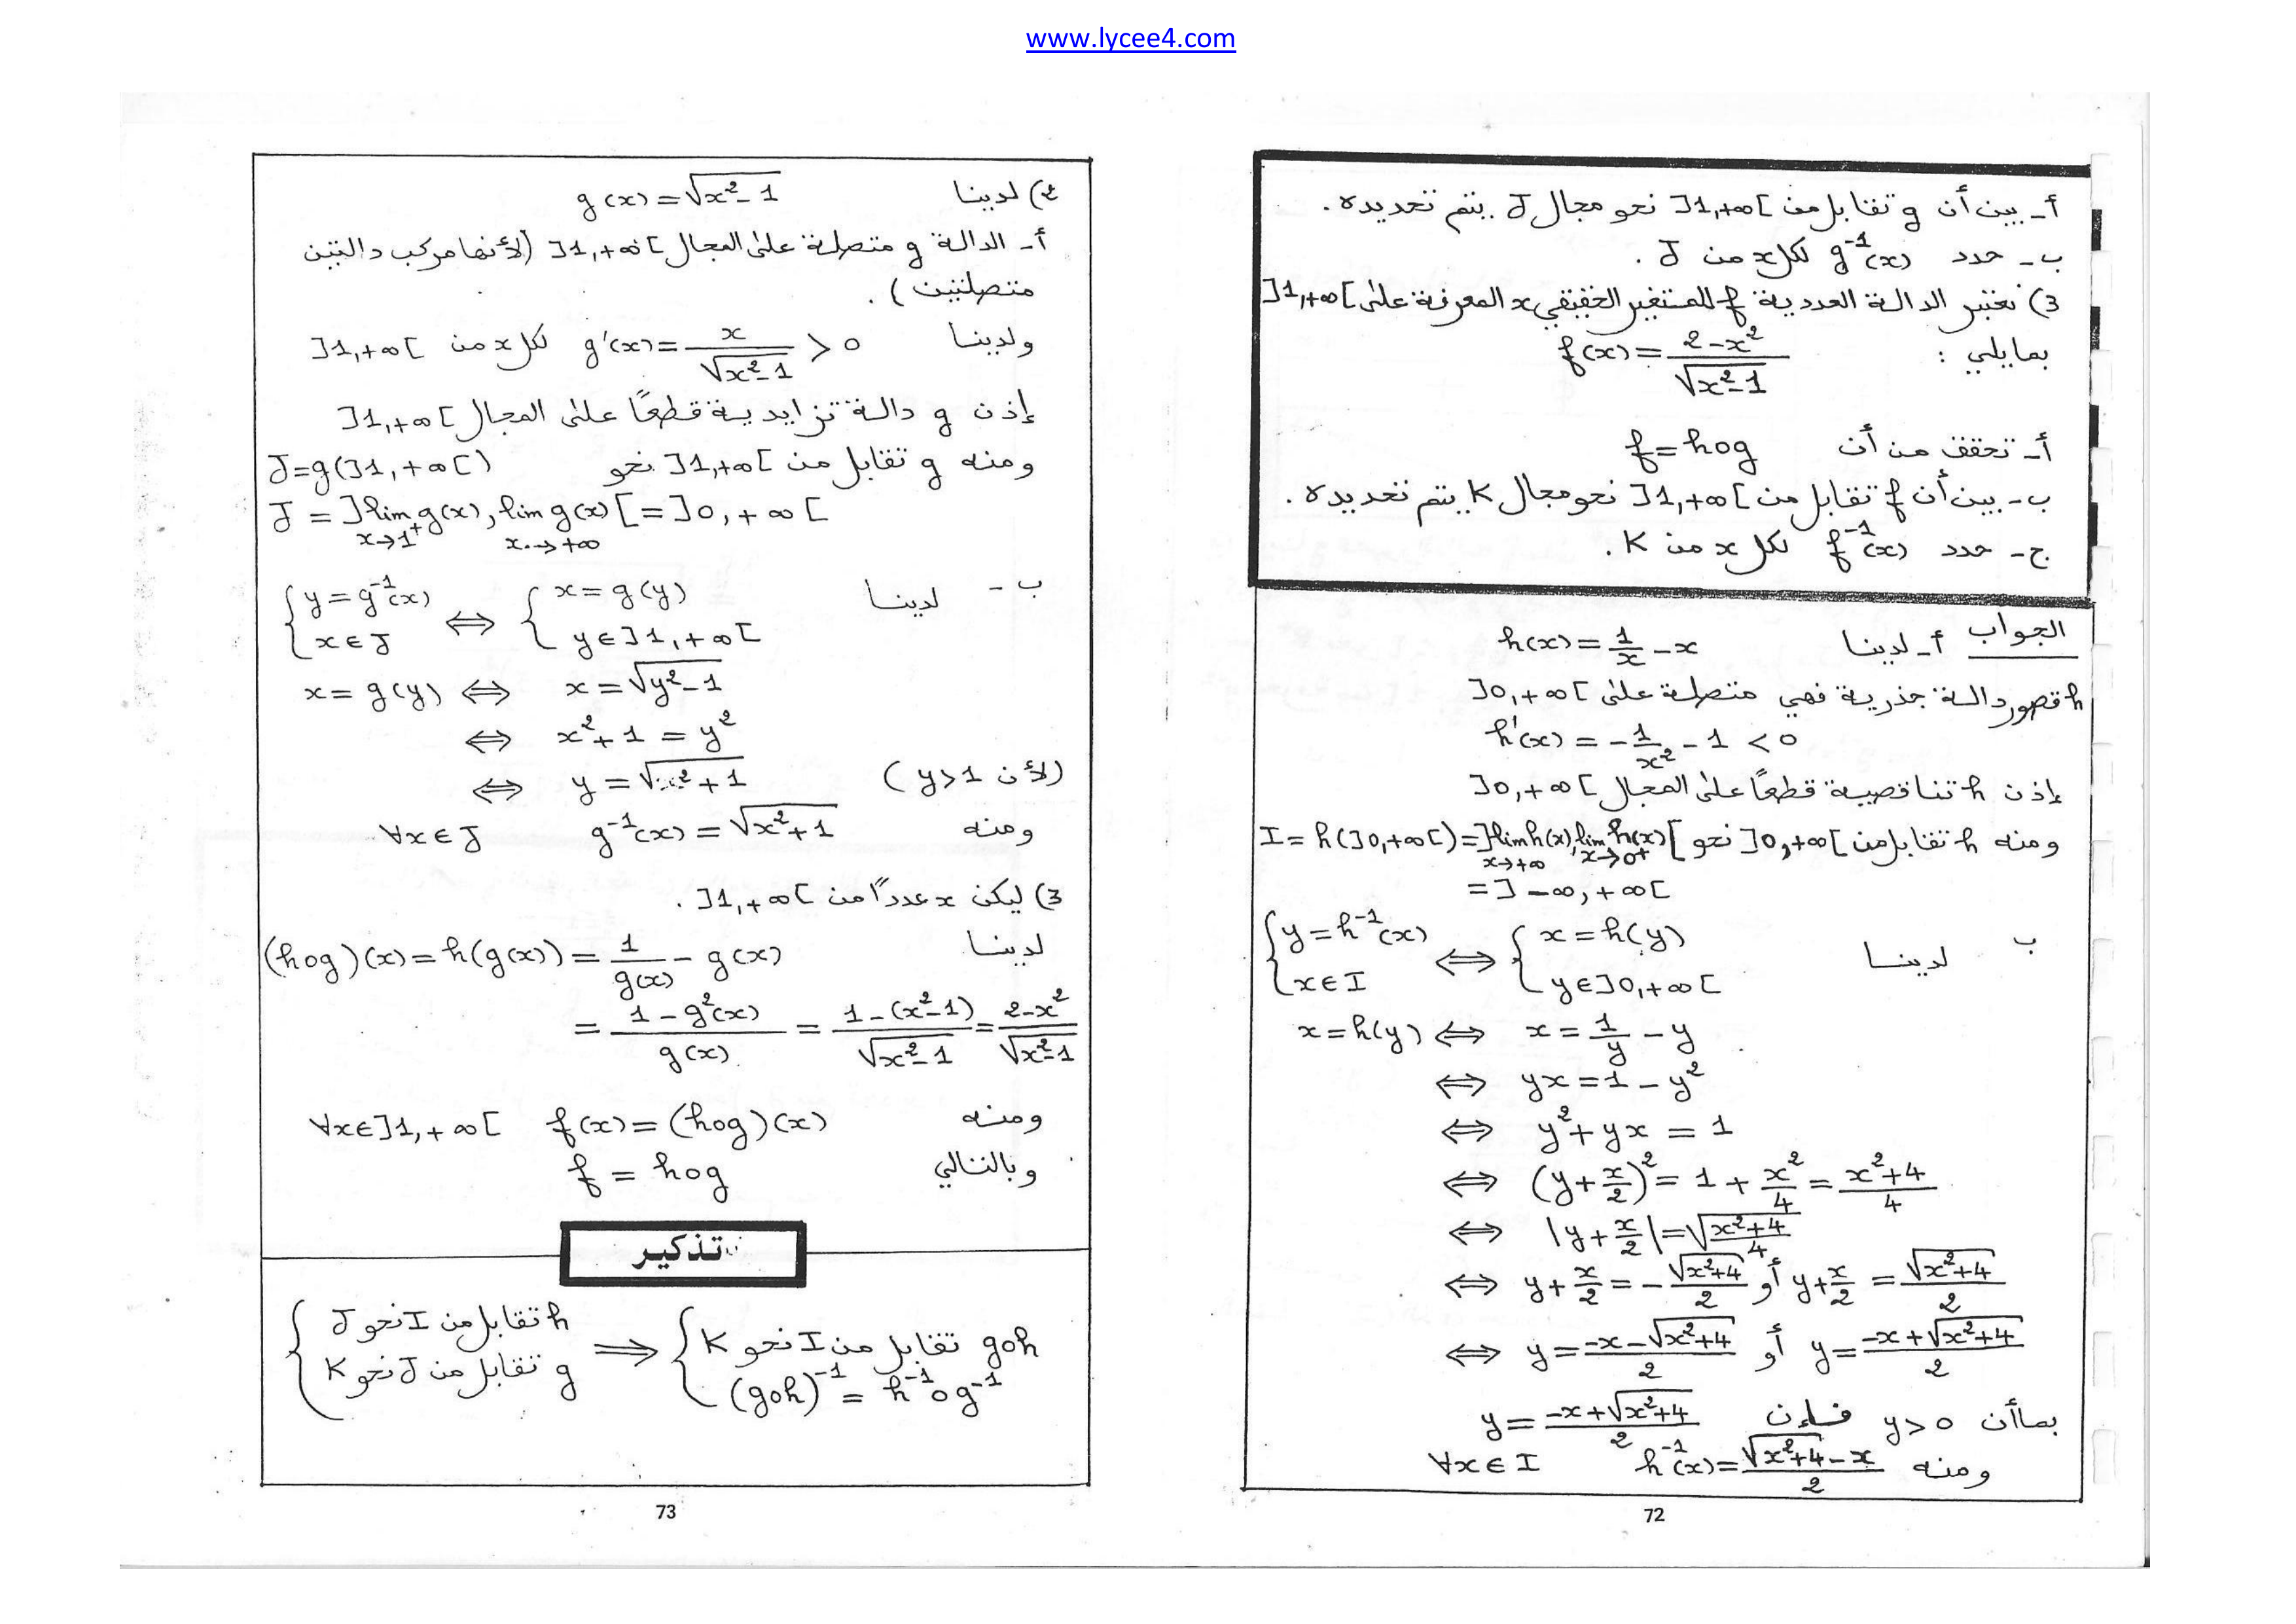 www.lycee4.com
أ- بين أن g تقابل من ]1,+∞[ نحو مجال J يتم تحديده.
ب- حدد g⁻¹(x) لكل x من J.
3) نعتبر الدالة العددية f للمتغير الحقيقي x المعرفة على ]1,+∞[
بمايلي : f(x) = (2-x²)/√(x²-1)
أ- تحقق من أن f = hog
ب- بين أن f تقابل من ]1,+∞[ نحو مجال K يتم تحديده.
ج- حدد f⁻¹(x) لكل x من K.
الجواب أ- لدينا h(x) = 1/x - x
h قصور دالة جذرية فهي متصلة على ]0,+∞[
h'(x) = -1/x² - 1 < 0
إذن h تناقصية قطعًا على المجال ]0,+∞[
ومنه h تقابل من ]0,+∞[ نحو I = h(]0,+∞[) = ]lim h(x) x→+∞, lim h(x) x→0⁺[
= ]-∞,+∞[
ب لدينا {y = h⁻¹(x) ; x∈I ⟺ {x = h(y) ; y∈]0,+∞[
x = h(y) ⟺ x = 1/y - y
⟺ yx = 1 - y²
⟺ y² + yx = 1
⟺ (y + x/2)² = 1 + x²/4 = (x²+4)/4
⟺ |y + x/2| = √((x²+4)/4)
⟺ y + x/2 = -√(x²+4)/2 أو y + x/2 = √(x²+4)/2
⟺ y = (-x-√(x²+4))/2 أو y = (-x+√(x²+4))/2
بما أن y > 0 فإن y = (-x+√(x²+4))/2
ومنه h⁻¹(x) = (√(x²+4)-x)/2 ∀x∈I
72
2) لدينا g(x) = √(x²-1)
أ- الدالة g متصلة على المجال ]1,+∞[ (لأنها مركب دالتين
متصلتين).
ولدينا g'(x) = x/√(x²-1) > 0 لكل x من ]1,+∞[
إذن g دالة تزايدية قطعًا على المجال ]1,+∞[
ومنه g تقابل من ]1,+∞[ نحو J = g(]1,+∞[)
J = ]lim g(x) x→1⁺, lim g(x) x→+∞[ = ]0,+∞[
ب- لدينا {y = g⁻¹(x) ; x∈J ⟺ {x = g(y) ; y∈]1,+∞[
x = g(y) ⟺ x = √(y²-1)
⟺ x²+1 = y²
⟺ y = √(x²+1) (لأن y>1)
ومنه g⁻¹(x) = √(x²+1) ∀x∈J
3) ليكن x عددًا من ]1,+∞[.
لدينا (hog)(x) = h(g(x)) = 1/g(x) - g(x)
= (1-g²(x))/g(x) = (1-(x²-1))/√(x²-1) = (2-x²)/√(x²-1)
ومنه f(x) = (hog)(x) ∀x∈]1,+∞[
وبالتالي f = hog
تذكير
{h تقابل من I نحو J ; g تقابل من J نحو K ⟹ {goh تقابل من I نحو K ; (goh)⁻¹ = h⁻¹og⁻¹
73